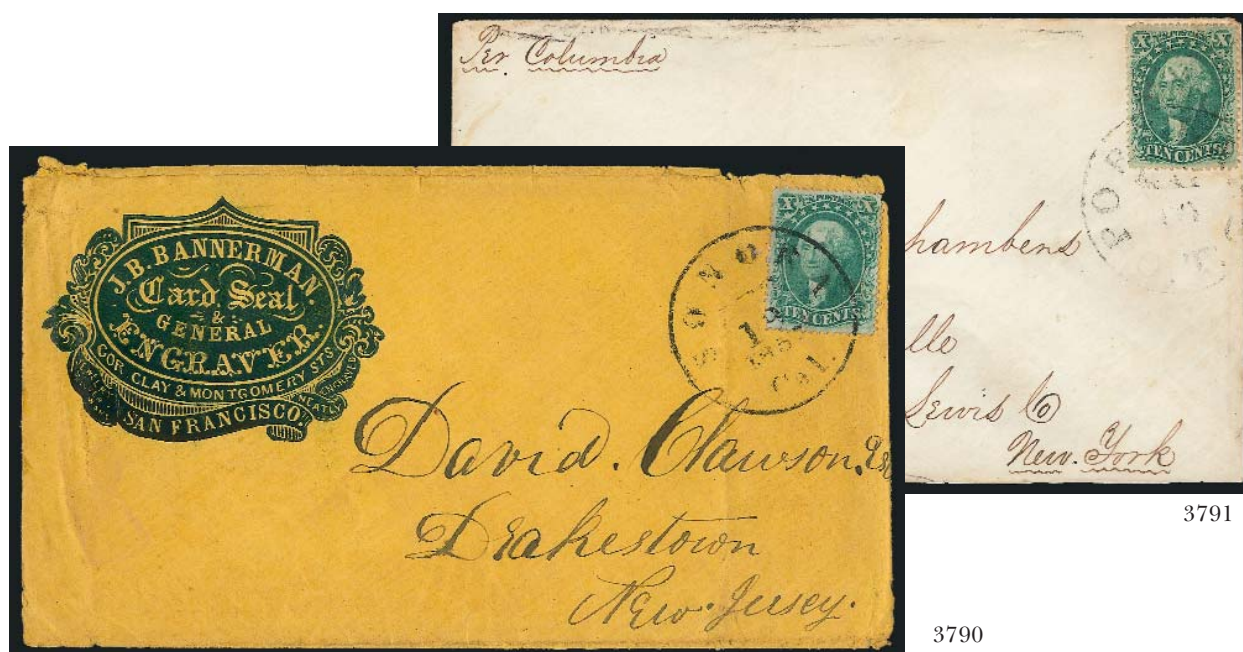 Per Columbia
X X
TEN CENTS
POR
hambens
llo
Lewis Co
New. York
3791
J. B. BANNERMAN.
Card Seal
&
GENERAL
ENGRAVER.
COR. CLAY & MONTGOMERY STS
NEATLY ENGRAVED
SAN FRANCISCO.
X X
TEN CENTS
SONORA
1
Cal.
David. Clawson. Esq
Drakestown
New. Jersey.
3790